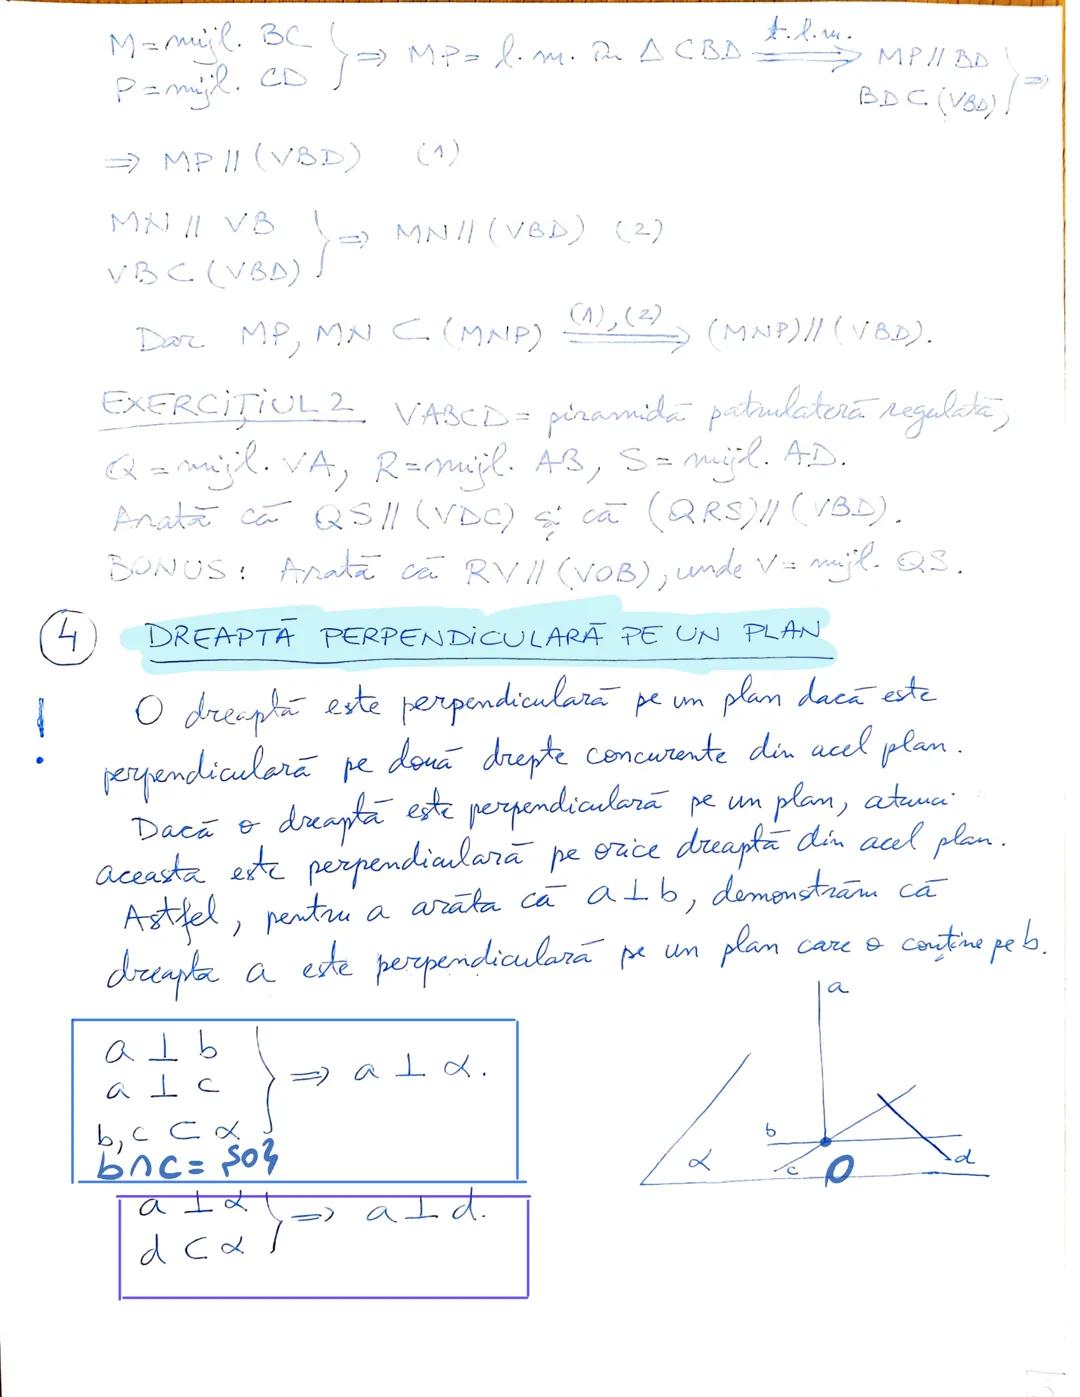 M = mijl. BC
P = mijl. CD } ⇒ MP = l.m. în Δ CBD =t.l.m.⇒ MP // BD
BD ⊂ (VBD) } ⇒
⇒ MP // (VBD) (1)
MN // VB
VB ⊂ (VBD) } ⇒ MN // (VBD) (2)
Dar MP, MN ⊂ (MNP) =(1),(2)⇒ (MNP) // (VBD).
EXERCIȚIUL 2 VABCD = piramidă patrulateră regulată,
Q = mijl. VA, R = mijl. AB, S = mijl. AD.
Arată că QS // (VDC) și că (QRS) // (VBD).
BONUS: Arată că RV // (VOB), unde V = mijl. QS.
4 DREAPTĂ PERPENDICULARĂ PE UN PLAN
! O dreaptă este perpendiculară pe un plan dacă este
perpendiculară pe două drepte concurente din acel plan.
Dacă o dreaptă este perpendiculară pe un plan, atunci
aceasta este perpendiculară pe orice dreaptă din acel plan.
Astfel, pentru a arăta că a ⊥ b, demonstrăm că
dreapta a este perpendiculară pe un plan care o conține pe b.
a
a ⊥ b
a ⊥ c
b, c ⊂ α } ⇒ a ⊥ α.
b ∩ c = {O}
b
c
O
d
α
a ⊥ α
d ⊂ α } ⇒ a ⊥ d.